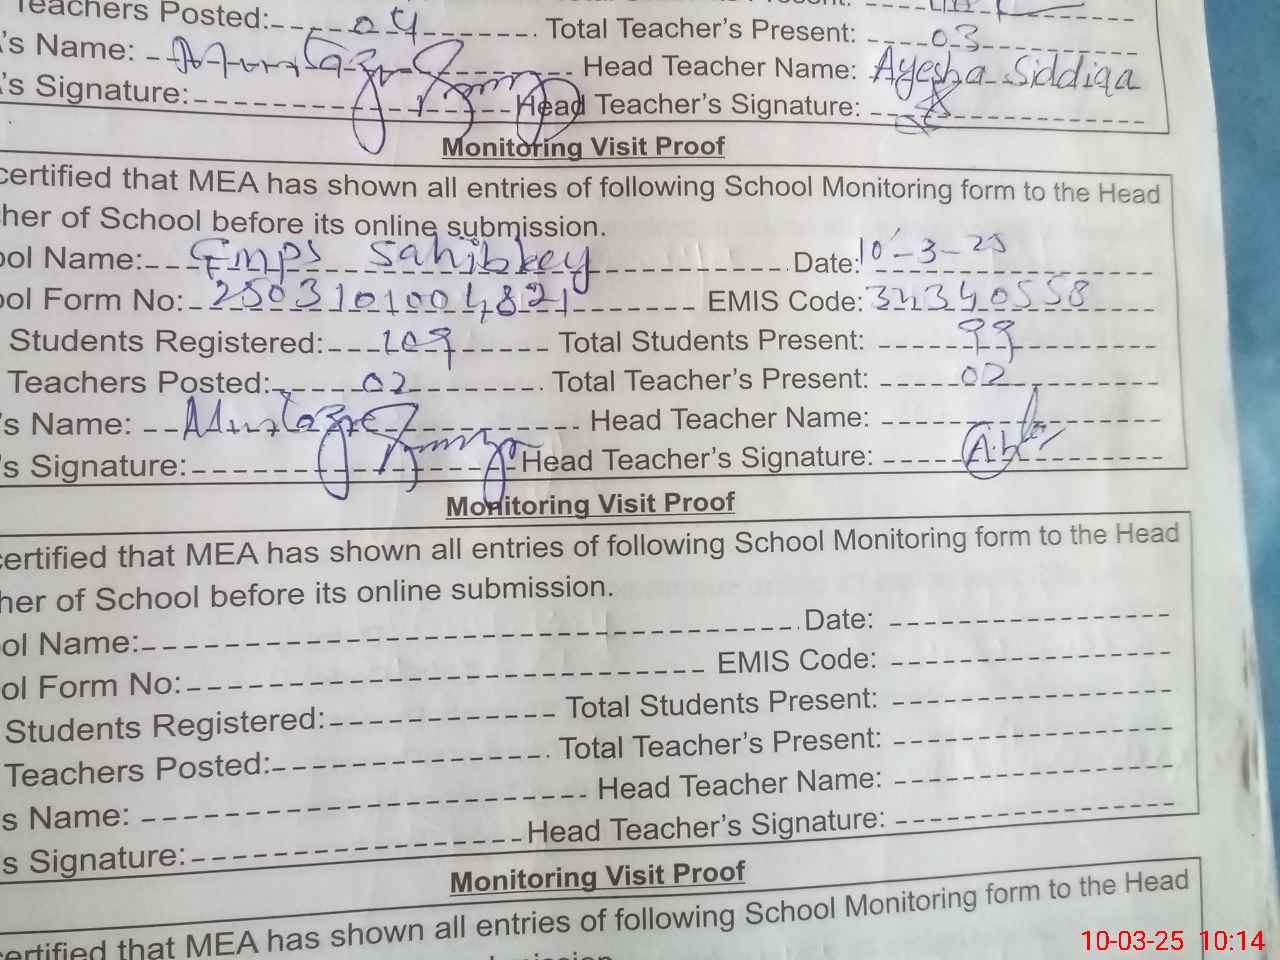 Teachers Posted: 04 Total Teacher's Present: 03
's Name: Head Teacher Name: Ayesha Siddiqa
's Signature: Head Teacher's Signature:
Monitoring Visit Proof
certified that MEA has shown all entries of following School Monitoring form to the Head
her of School before its online submission.
ool Name: Gmps Sahibkey Date: 10-3-25
ool Form No: 2503101004821 EMIS Code: 34340558
Students Registered: 109 Total Students Present: 99
Teachers Posted: 02 Total Teacher's Present: 02
's Name: Head Teacher Name:
's Signature: Head Teacher's Signature:
Monitoring Visit Proof
certified that MEA has shown all entries of following School Monitoring form to the Head
her of School before its online submission.
ol Name: Date:
ol Form No: EMIS Code:
Students Registered: Total Students Present:
Teachers Posted: Total Teacher's Present:
s Name: Head Teacher Name:
s Signature: Head Teacher's Signature:
Monitoring Visit Proof
certified that MEA has shown all entries of following School Monitoring form to the Head
10-03-25 10:14